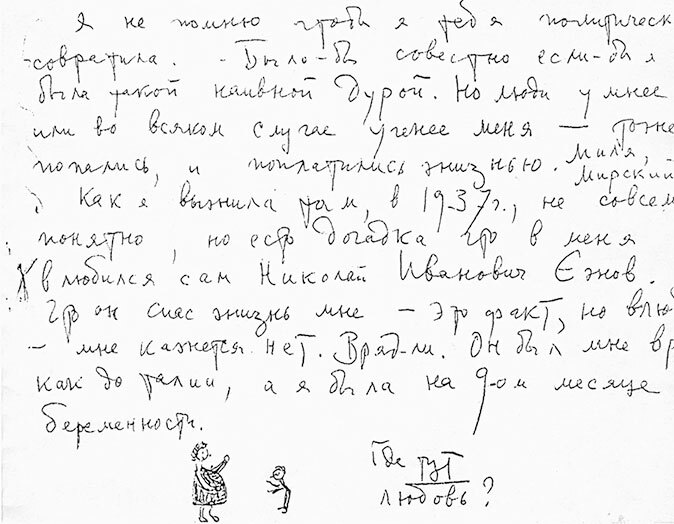 Я не помню чтобы я тебя политическ
совратила. - Было-бы совестно если-бы я
была такой наивной Дурой. Но люди умнее
или во всяком случае ученее меня — тоже
попались, и поплатились жизнью. Миля,
Мирский
Как я выжила там, в 1937г., не совсем
понятно, но есть догадка что в меня
влюбился сам Николай Иванович Ежов.
Что он спас жизнь мне — это факт, но влю
— мне кажется нет. Вряд-ли. Он был мне вр
как до талии, а я была на 9-ом месяце
беременности.
Где тут
любовь?